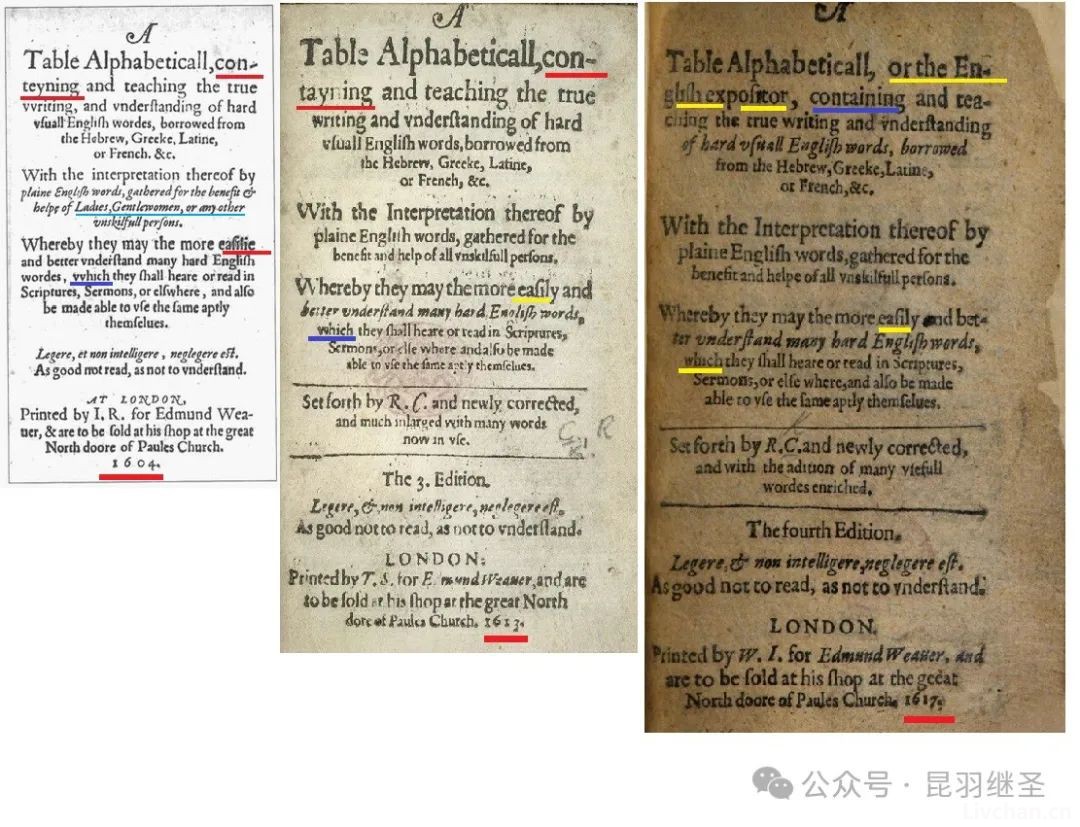 A
Table Alphabeticall, con-
teyning and teaching the true
vvriting, and vnderſtanding of hard
vſuall Engliſh wordes, borrowed from
the Hebrew, Greeke, Latine,
or French. &c.
With the interpretation thereof by
plaine Engliſh words, gathered for the benefit &
helpe of Ladies, Gentlewomen, or any other
vnskilfull perſons.
Whereby they may the more eaſilie
and better vnderſtand many hard Engliſh
wordes, vvhich they ſhall heare or read in
Scriptures, Sermons, or elſwhere, and alſo
be made able to vſe the ſame aptly
themſelues.
Legere, et non intelligere, neglegere eſt.
As good not read, as not to vnderſtand.
AT LONDON,
Printed by I. R. for Edmund Wea-
uer, & are to be ſold at his ſhop at the great
North doore of Paules Church.
1604.
A
Table Alphabeticall, con-
tayning and teaching the true
writing and vnderſtanding of hard
vſuall Engliſh words, borrowed from
the Hebrew, Greeke, Latine,
or French, &c.
With the Interpretation thereof by
plaine Engliſh words, gathered for the
benefit and help of all vnskilfull perſons.
Whereby they may the more eaſily and
better vnderſtand many hard Engliſh words,
which they ſhall heare or read in Scriptures,
Sermons, or elſe where and alſo be made
able to vſe the ſame aptly themſelues.
Set forth by R. C. and newly corrected,
and much inlarged with many words
now in vſe.
The 3. Edition.
Legere, & non intelligere, neglegere eſt.
As good not to read, as not to vnderſtand.
LONDON:
Printed by T. S. for Edmund Weauer, and are
to be ſold at his ſhop at the great North
dore of Paules Church. 1613.
A
Table Alphabeticall, or the En-
gliſh expoſitor, containing and tea-
ching the true writing and vnderſtanding
of hard vſuall Engliſh words, borrowed
from the Hebrew, Greeke, Latine,
or French, &c.
With the Interpretation thereof by
plaine Engliſh words, gathered for the
benefit and helpe of all vnskilfull perſons.
Whereby they may the more eaſily and bet-
ter vnderſtand many hard Engliſh words,
which they ſhall heare or read in Scriptures,
Sermons, or elſe where, and alſo be made
able to vſe the ſame aptly themſelues.
Set forth by R.C. and newly corrected,
and with the adition of many vſefull
wordes enriched.
The fourth Edition.
Legere, & non intelligere, neglegere eſt.
As good not to read, as not to vnderſtand.
LONDON,
Printed by W. I. for Edmund Weauer, and
are to be ſold at his ſhop at the great
North doore of Paules Church. 1617.
公众号 · 昆羽继圣
Livchan.cn